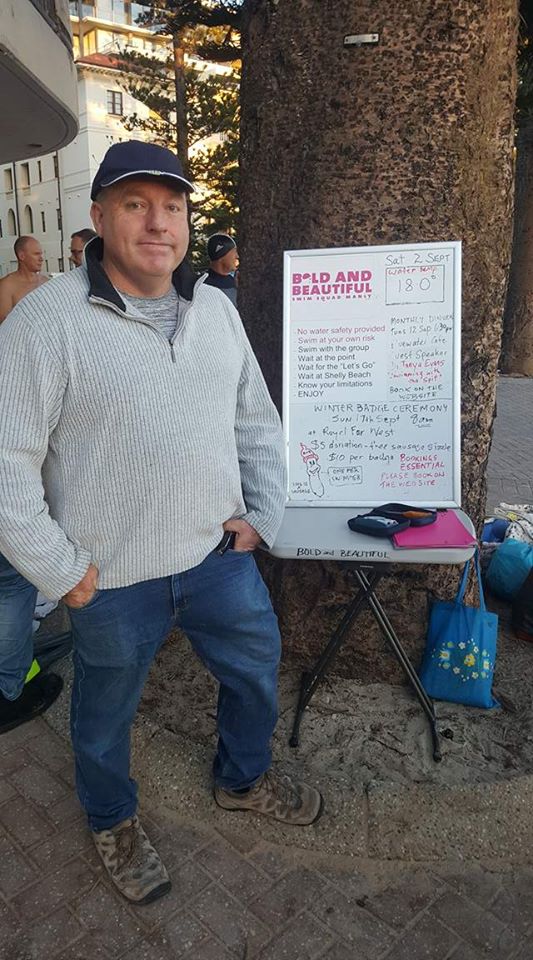 BOLD AND
BEAUTIFUL
SWIM SQUAD MANLY
Sat 2 SEPT
Water temp
18.0°
No water safety provided
Swim at your own risk
Swim with the group
Wait at the point
Wait for the "Let's Go"
Wait at Shelly Beach
Know your limitations
ENJOY
MONTHLY DINNER
Tues 12 Sep 6:30pm
Guest Speaker
Tanya Evans
Swimming with
BOOK ON THE
WEBSITE
WINTER BADGE CEREMONY
SUN 17th Sept 8am
at Royal Far West
$5 donation - free sausage sizzle
$10 per badge
BOOKINGS
ESSENTIAL
PLEASE BOOK ON
THE WEBSITE
ONE PER
SWIMMER
BOLD and BEAUTIFUL